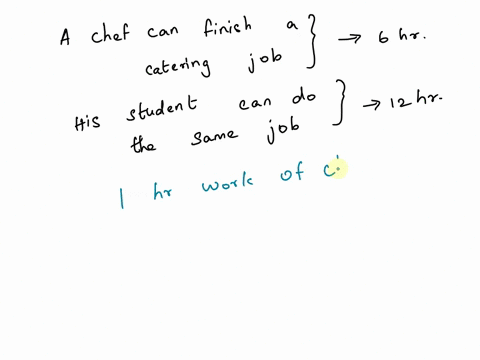 A chef can finish a
catering job → 6 hr.
His student can do
the same job → 12 hr.
1 hr work of